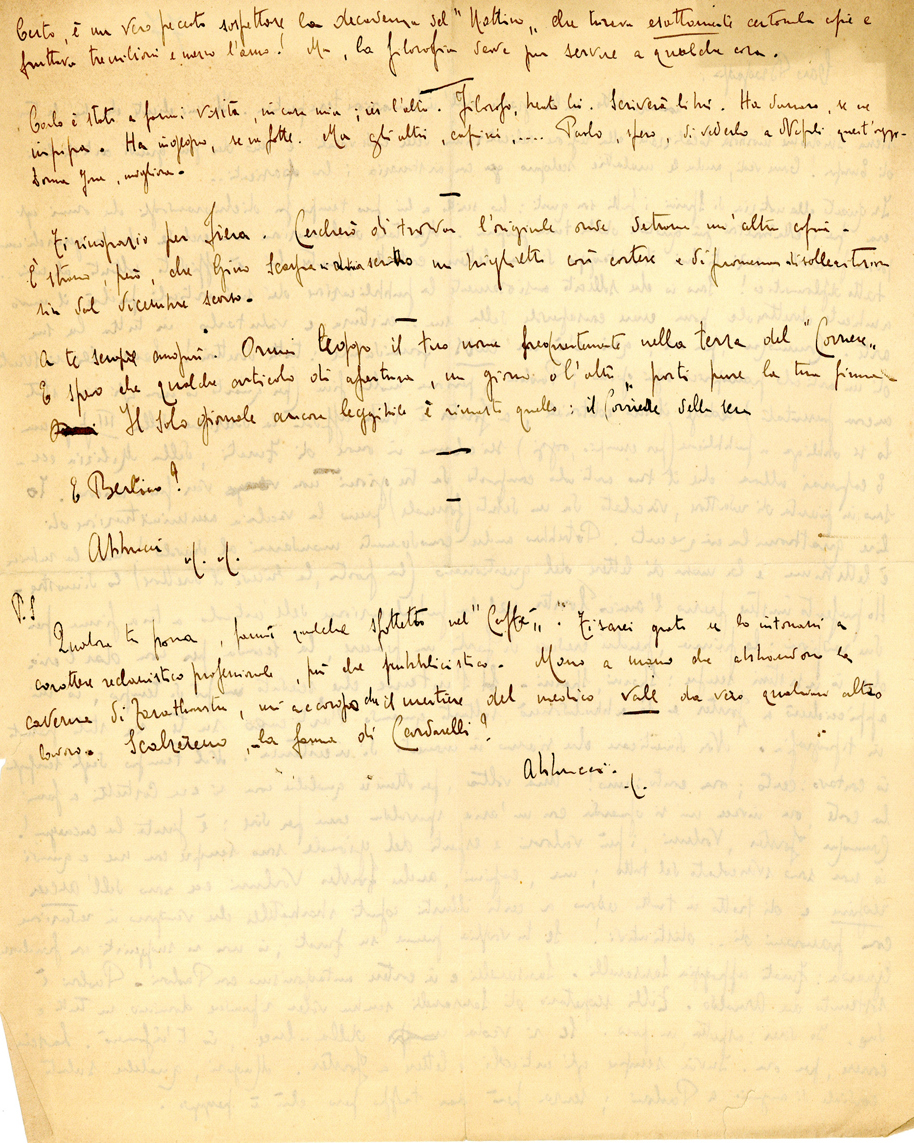 Certo, è un vero peccato sospettare la decadenza del "Mattino„ che tirava esattamente centomila copie e
fruttava tre milioni e mezzo l'anno! Ma, la filosofia deve pur servire a qualche cosa.
Carlo è stato a farmi visita, in casa mia; ier l'altro. Filosofo, beato lui. Scriverà libri. Ha danaro, se ne
impipa. Ha ingegno, se ne fotte. Ma gli altri, capisci, .... Paolo, spero, di vederlo a Napoli quest'oggi.
Donna migliora.
Ti ringrazio per Fiera. Cercherò di trovare l'originale onde detrarne un'altra copia.
È strano, però, che Gino abbia scritto un biglietto così cortese e di promessa di sollecitazione
sin dal dicembre scorso.
A te sempre auguri. Ormai leggo il tuo nome frequentemente nella terza del "Corriere„
E spero che qualche articolo di apertura, un giorno o l'altro, porti pure la tua firma.
Il solo giornale ancora leggibile è rimasto quello: il Corriere della sera
E Berlino?
Abbracci
P.S
Qualora tu possa, fammi qualche soffietto nel "Caffè„. Ti sarei grato se lo intonassi a
carattere reclamistico professionale, più che pubblicistico. Mano a mano che abbandono la
caverna di Zarathustra, mi accorgo che il mestiere del medico vale da vero qualsiasi altro
lavoro. la fama di Cardarelli?
Abbracci.